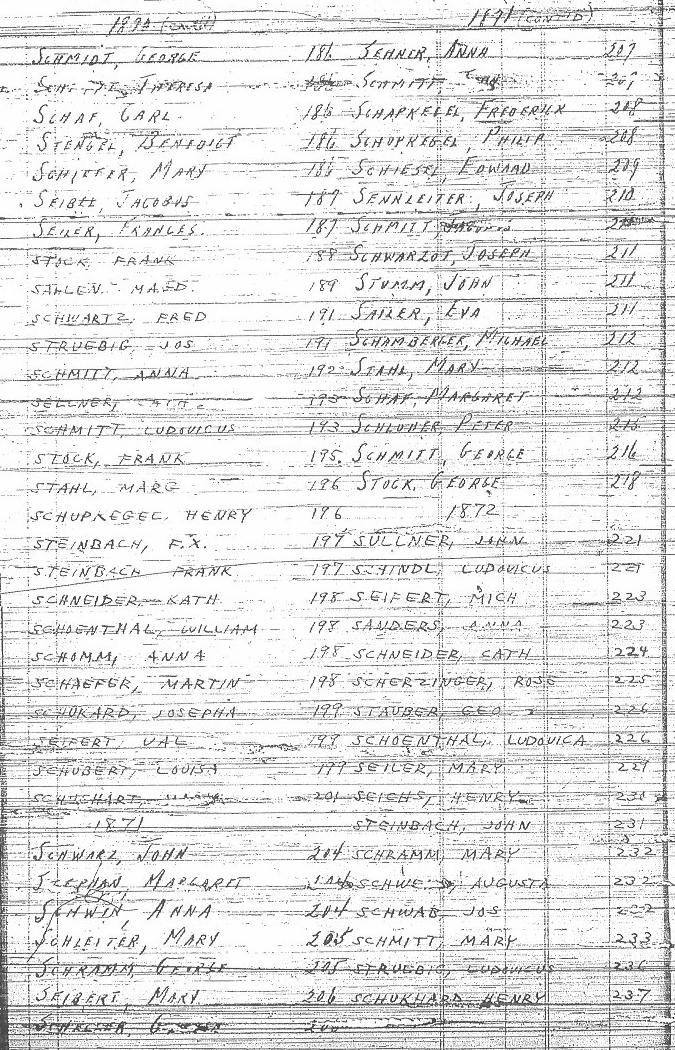 1871 (CONT'D)
SCHMIDT, GEORGE 186
THERESA
SCHAF, CARL 186
STENGEL, BENEDIGT 186
SCHIEFER, MARY 186
SEIBEL, JACOBUS 187
SEILER, FRANCES. 187
STOCK, FRANK 188
SALLEN, 189
SCHWARTZ, FRED 191
STRUEBIG, JOS 191
SCHMITT, ANNA 192
SELLNER, 193
SCHMITT, LUDOVICUS 193
STOCK, FRANK 195
STAHL, MARG 196
SCHUPKEGEL, HENRY 196
STEINBACH, F.X. 197
STEINBACH FRANK 197
SCHNEIDER, KATH 198
SCHOENTHAL, WILLIAM 198
SCHOMM, ANNA 198
SCHAEFER, MARTIN 198
SCHUKARD, JOSEPHA 199
SEIFERT, VAL 199
SCHUBERT, LOUISA 199
201
1871
SCHWARZ, JOHN 204
STEPHAN, MARGARET 204
SCHWIN, ANNA 204
SCHLEITER, MARY 205
SCHRAMM, GEORGE 205
SEIBERT, MARY 206
SEHNER, ANNA 207
SCHMITT, 207
SCHAPKEGEL, FREDERICK 208
SCHUPKEGEL, PHILIP 208
SCHIESEL, EDWARD 209
SENNLEITER, JOSEPH 210
SCHMITT,
SCHWARZOT, JOSEPH 211
STUMM, JOHN 211
SAILER, EVA 211
SCHAMBERGER, MICHAEL 212
STAHL, MARY 212
SCHAF, MARGARET 212
SCHLOHER PETER 215
SCHMITT, GEORGE 216
STOCK, GEORGE 218
1872
SULLNER, JOHN 221
SCHINDL, LUDOVICUS 221
SEIFERT, MICH 223
SANDERS, ANNA 223
SCHNEIDER, CATH 224
SCHERZINGER, ROSE 225
STAUBER, GEO 226
SCHOENTHAL, LUDOVICA 226
SEILER, MARY 229
SEICHS, HENRY 230
STEINBACH, JOHN 231
SCHRAMM, MARY 232
AUGUSTA 232
SCHWAB, JOS
SCHMITT, MARY 233
STRUEBIG, LUDOVICUS 236
SCHUKHARD HENRY 237